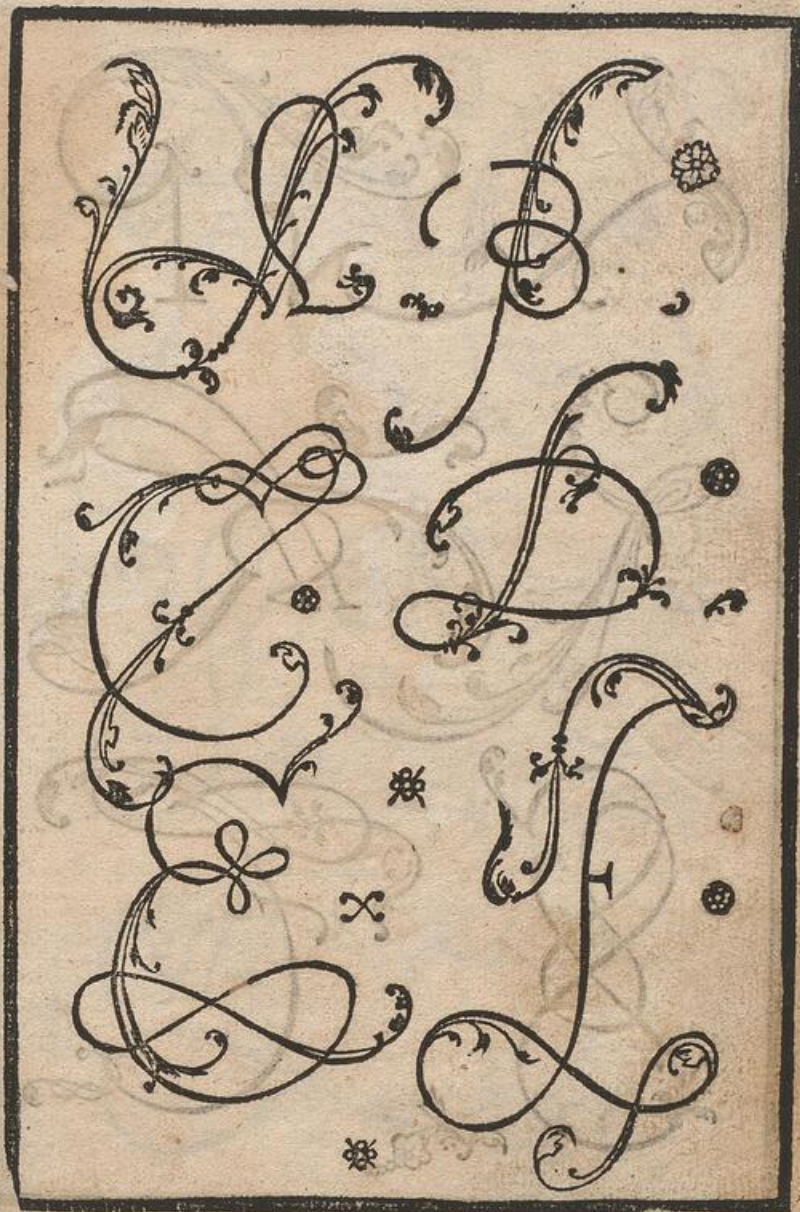 A B
C D
E F